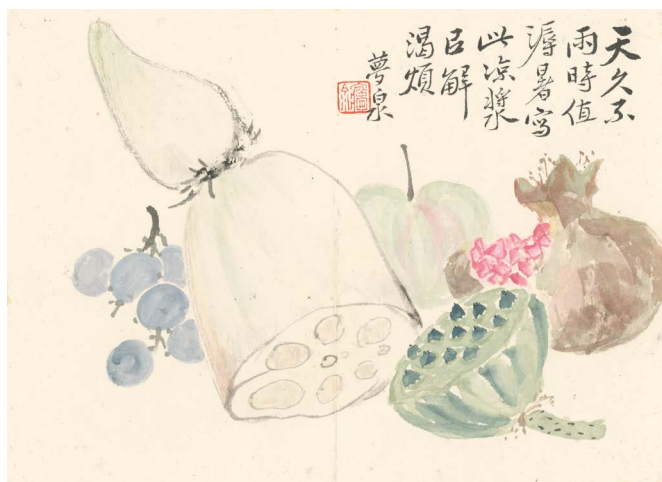 天久不
雨時值
溽暑寫
此凉漿
㠯解
渴煩
夢泉